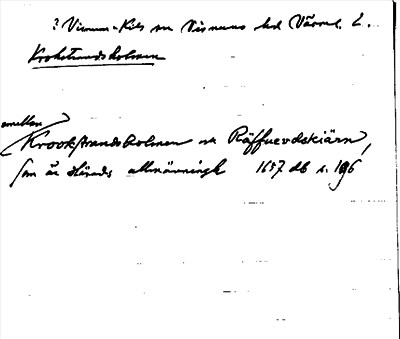 ? Visnum-Kils sn Visnums hd Värml. l.
Krokstrandsholmen
emellan
Krookstrandsholmen ok Räffuerdskiärn,
som är Härads allmänningh 1657 db s. 196